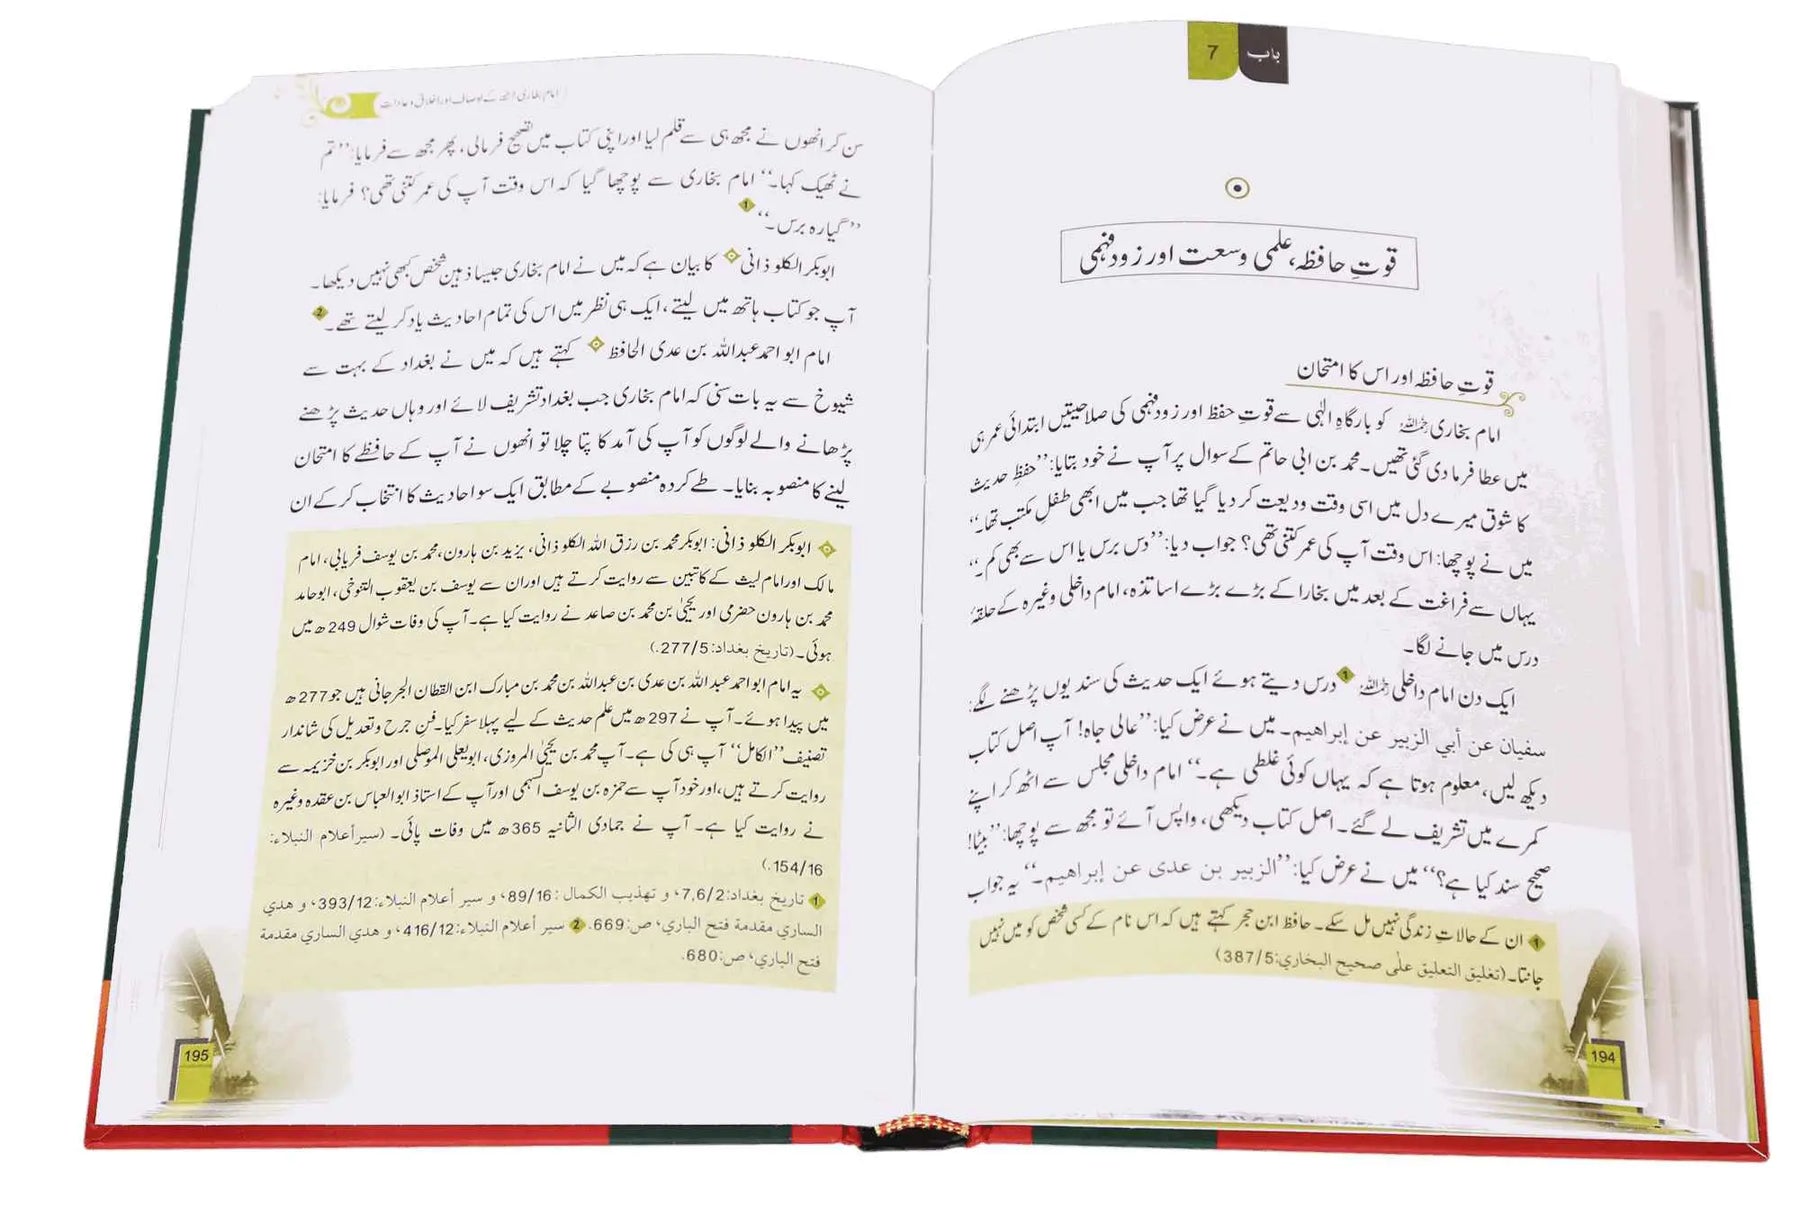 باب 7
قوتِ حافظہ، علمی وسعت اور زود فہمی
قوتِ حافظہ اور اس کا امتحان
امام بخاری رحمہ اللہ کو بارگاہِ الٰہی سے قوتِ حفظ اور زود فہمی کی صلاحیتیں ابتدائی عمر ہی
میں عطا فرما دی گئی تھیں۔ محمد بن ابی حاتم کے سوال پر آپ نے خود بتایا: ’’حفظِ حدیث
کا شوق میرے دل میں اسی وقت ودیعت کر دیا گیا تھا جب میں ابھی طفلِ مکتب تھا۔‘‘
میں نے پوچھا: اس وقت آپ کی عمر کتنی تھی؟ جواب دیا: ’’دس برس یا اس سے بھی کم۔‘‘
یہاں سے فراغت کے بعد میں بخارا کے بڑے بڑے اساتذہ، امام داخلی وغیرہ کے حلقۂ
درس میں جانے لگا۔
ایک دن امام داخلی رحمہ اللہ 1 درس دیتے ہوئے ایک حدیث کی سند یوں پڑھنے لگے:
سفيان عن أبي الزبير عن إبراهيم۔ میں نے عرض کیا: ’’عالی جاہ! آپ اصل کتاب
دیکھ لیں، معلوم ہوتا ہے کہ یہاں کوئی غلطی ہے۔‘‘ امام داخلی مجلس سے اٹھ کر اپنے
کمرے میں تشریف لے گئے۔ اصل کتاب دیکھی، واپس آئے تو مجھ سے پوچھا: ’’بیٹا!
صحیح سند کیا ہے؟‘‘ میں نے عرض کیا: ’’الزبير بن عدی عن إبراهيم۔‘‘ یہ جواب
1 ان کے حالاتِ زندگی نہیں مل سکے۔ حافظ ابن حجر کہتے ہیں کہ اس نام کے کسی شخص کو میں نہیں
جانتا۔ (تغليق التعليق على صحيح البخاري: 387/5)
194
امام بخاری رحمہ اللہ کے اوصاف اور اخلاق و عادات
سن کر انھوں نے مجھ ہی سے قلم لیا اور اپنی کتاب میں تصحیح فرمالی، پھر مجھ سے فرمایا: ’’تم
نے ٹھیک کہا۔‘‘ امام بخاری سے پوچھا گیا کہ اس وقت آپ کی عمر کتنی تھی؟ فرمایا:
’’گیارہ برس۔‘‘ 1
ابوبکر الکلوذانی کا بیان ہے کہ میں نے امام بخاری جیسا ذہین شخص کبھی نہیں دیکھا۔
آپ جو کتاب ہاتھ میں لیتے، ایک ہی نظر میں اس کی تمام احادیث یاد کر لیتے تھے۔ 2
امام ابو احمد عبداللہ بن عدی الحافظ کہتے ہیں کہ میں نے بغداد کے بہت سے
شیوخ سے یہ بات سنی کہ امام بخاری جب بغداد تشریف لائے اور وہاں حدیث پڑھنے
پڑھانے والے لوگوں کو آپ کی آمد کا پتا چلا تو انھوں نے آپ کے حافظے کا امتحان
لینے کا منصوبہ بنایا۔ طے کردہ منصوبے کے مطابق ایک سو احادیث کا انتخاب کرکے ان
ابوبکر الکلوذانی: ابوبکر محمد بن رزق اللہ الکلوذانی، یزید بن ہارون، محمد بن یوسف فریابی، امام
مالک اور امام لیث کے کاتبین سے روایت کرتے ہیں اور ان سے یوسف بن یعقوب التنوخی، ابوحامد
محمد بن ہارون حضرمی اور یحییٰ بن محمد بن صاعد نے روایت کیا ہے۔ آپ کی وفات شوال 249ھ میں
ہوئی۔ (تاریخ بغداد: 277/5.)
یہ امام ابو احمد عبداللہ بن عدی بن عبداللہ بن محمد بن مبارک ابن القطان الجرجانی ہیں جو 277ھ
میں پیدا ہوئے۔ آپ نے 297ھ میں علم حدیث کے لیے پہلا سفر کیا۔ فنِ جرح و تعدیل کی شاندار
تصنیف ’’الکامل‘‘ آپ ہی کی ہے۔ آپ محمد بن یحییٰ المروزی، ابویعلی الموصلی اور ابوبکر بن خزیمہ سے
روایت کرتے ہیں، اور خود آپ سے حمزہ بن یوسف السہمی اور آپ کے استاذ ابوالعباس بن عقدہ وغیرہ
نے روایت کیا ہے۔ آپ نے جمادی الثانیہ 365ھ میں وفات پائی۔ (سیر أعلام النبلاء:
154/16.)
1 تاریخ بغداد: 7,6/2، و تهذيب الكمال: 89/16، و سير أعلام النبلاء: 393/12، و هدي
الساري مقدمة فتح الباري، ص: 669. 2 سير أعلام النبلاء: 416/12، و هدي الساري مقدمة
فتح الباري، ص: 680.
195